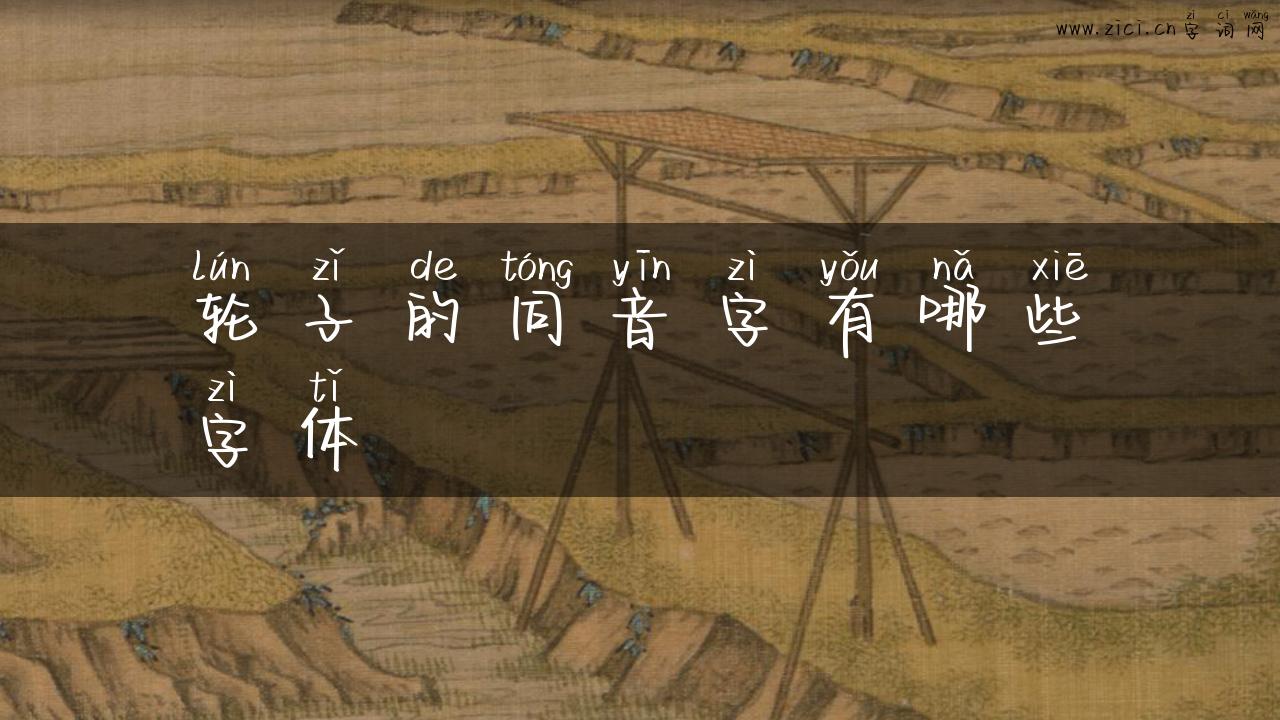 zì cí wǎng
www.zici.cn 字 词 网
lún zǐ de tóng yīn zì yǒu nǎ xiē
轮 子 的 同 音 字 有 哪 些
zì tǐ
字 体